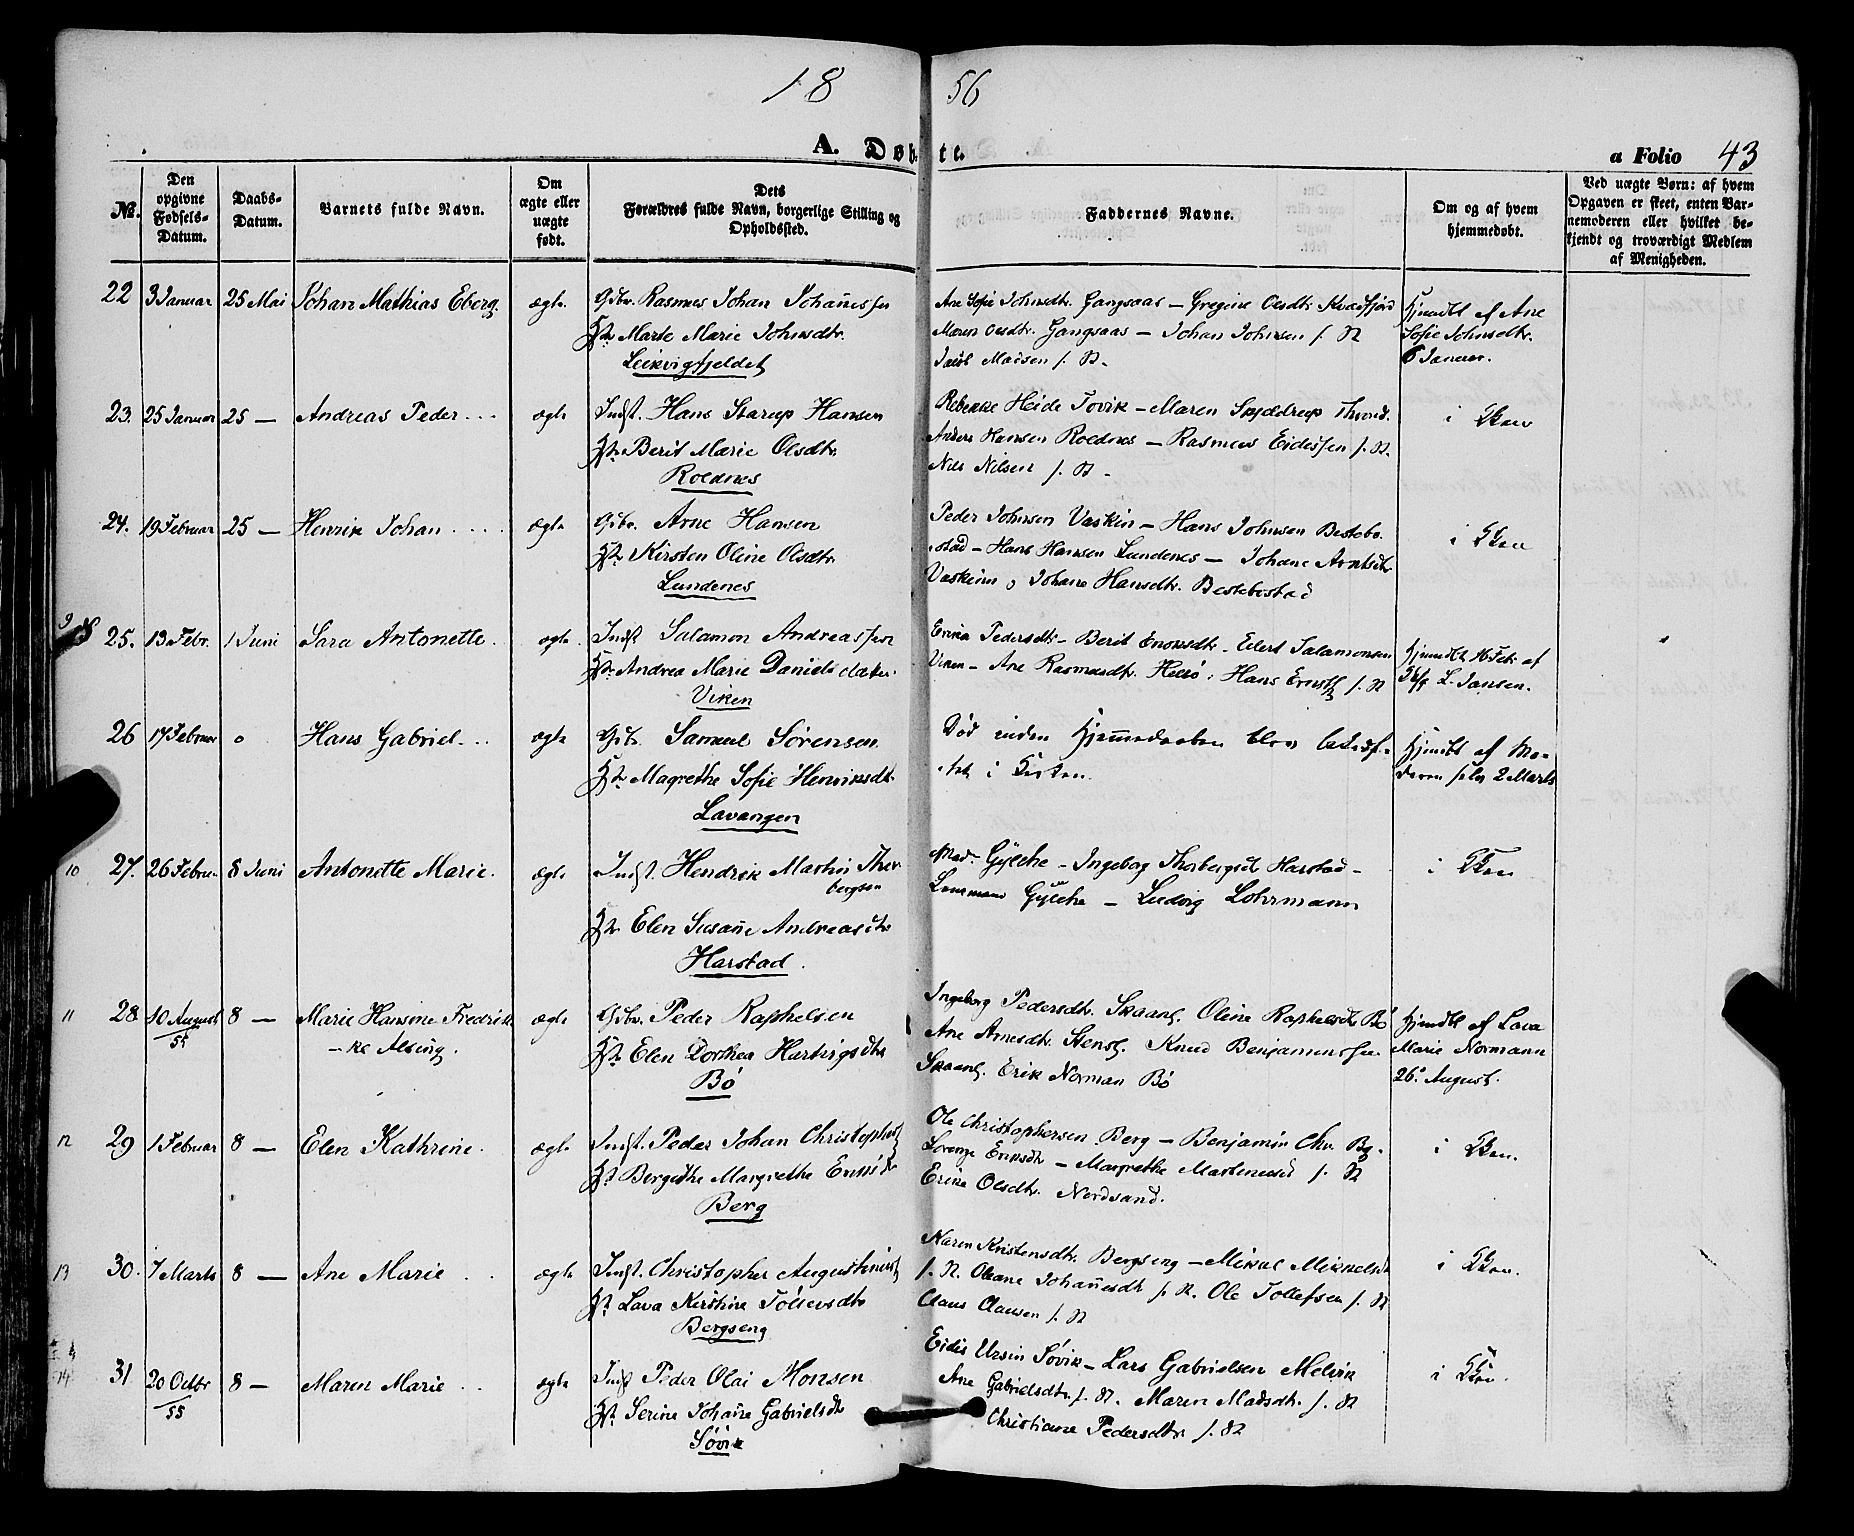 18 56
A. Døbte.
a Folio 43
No.
Den opgivne Fødsels-Datum.
Daabs-Datum.
Barnets fulde Navn.
Om ægte eller uægte født.
Dets Forældres fulde Navn, borgerlige Stilling og Opholdssted.
Faddernes Navne.
Om og af hvem hjemmedøbt.
Ved uægte Børn: af hvem Opgaven er skeet, enten Barnemoderen eller hvilket bekjendt og troværdigt Medlem af Menigheden.
22 3 Januar 25 Mai Johan Mathias Eberg. ægte Gbr. Rasmus Johan Johannessen
Hst. Marte Marie Johnsdtr.
Leikvigfjeldet
Ane Sofie Johnsdtr. Gangsaas – Gregine Olsdtr. Kvæfjord
Maren Olsdtr. Gangsaas – Johan Johnsen s. St
Jacob Madsen s. St.
Hjemdbt af Ane
Sofie Johnsdtr.
6 Januar.
23. 25 Januar 25 — Andreas Peder ægte Indst. Hans Starup Hansen
Hst. Berit Marie Olsdtr.
Rodnes
Rebekke Heide Tovik – Maren Trond.
Anders Hansen Rodnes – Rasmus Eidissen s. St.
Nils Nilsen s. St.
i Kken
24. 19 Februar 25 — Henrik Johan ægte Gbr. Arne Hansen
Hst. Kirsten Oline Olsdtr.
Lundenes
Peder Johnsen Vaskin – Hans Johnsen Bestebo
stad – Hans Hansen Lundenes – Johane Arntsdtr
Vaskinn, Johane Hansdtr. Bestebostad
i Kken
9 25. 13 Febr. 1 Juni Sara Antonette. ægte Indst Salamon Andreassen
Hst. Andrea Marie Daniels datter
Viken
Erika Pedersdtr – Berit Enoksdtr – Edert Salamonsen
Viken – Ane Rasmusdtr. Hans Ernst s. St
Hjemdbt 16 Febr af
L. Jansen.
26 17 Februar o Hans Gabriel ægte Gbr Samuel Sørensen
Hst. Magrethe Sofie Henriksdtr
Lavangen
Død inden Hjemmedaaben blev bekræf-
tet i Kirken.
Hjemdbt af Mo-
deren 2 Marts
10 27. 26 Februar 8 Juni Antonette Marie. ægte Indst. Hendrik Martin Thor
bergsen
Hst Elen Susanne Andreasdtr
Harstad
Mad. Gylche – Ingeborg Thorbergsdt Harstad –
Lensmand Gylche – Ludvig Lohrmann
i Kken
11 28 10 August 8 — Marie Hansine Fredrik ægte Gbr. Peder Raphelsen
55 – ke Alsing. Hst Elen Dorthea Hartvigsdtr
Bø
Ingeborg Pedersdtr. Skaanl. Oline Raphelsdtr Bø
Ane Arnesdtr Stensl. Knud Benjaminssen
Skaanl. Erik Norman Bø
Hjemdbt af Lava
Marie Normann
26. August.
12 29 1 Februar 8 — Elen Kathrine. ægte Indst. Peder Johan Christophers
Hst Bergithe Margrethe Eriksdtr
Berg
Ole Christophersen Berg – Benjamin Chr. Bg.
Lorenze Eriksdtr – Margrethe Martinusd s. St
Erika Olsdtr. Nordsand.
i Kken.
13 30. 7 Marts 8 — Ane Marie ægte Indst. Christopher Augustinus
Hst Lava Kirstine Tollevsdtr
Bergseng
Karen Kristensdtr. Bergseng – Mikal Mikkelsd
s. St. Oleane Johannesdt s. St. Ole Tollefsen s. St
Claus Clausen s. St
i Kken.
14 31 20 Octbr 8 — Maren Marie ægte Indst Peder Olai Monsen
55 Hst Serine Johanne Gabrielsdtr
Søvik
Eidis Ursin Søvik – Lars Gabrielsen Melvik
Ane Gabrielsdtr s. St. Maren Madsdt. s. St
Christiane Pedersdtr s. St
i Kken.